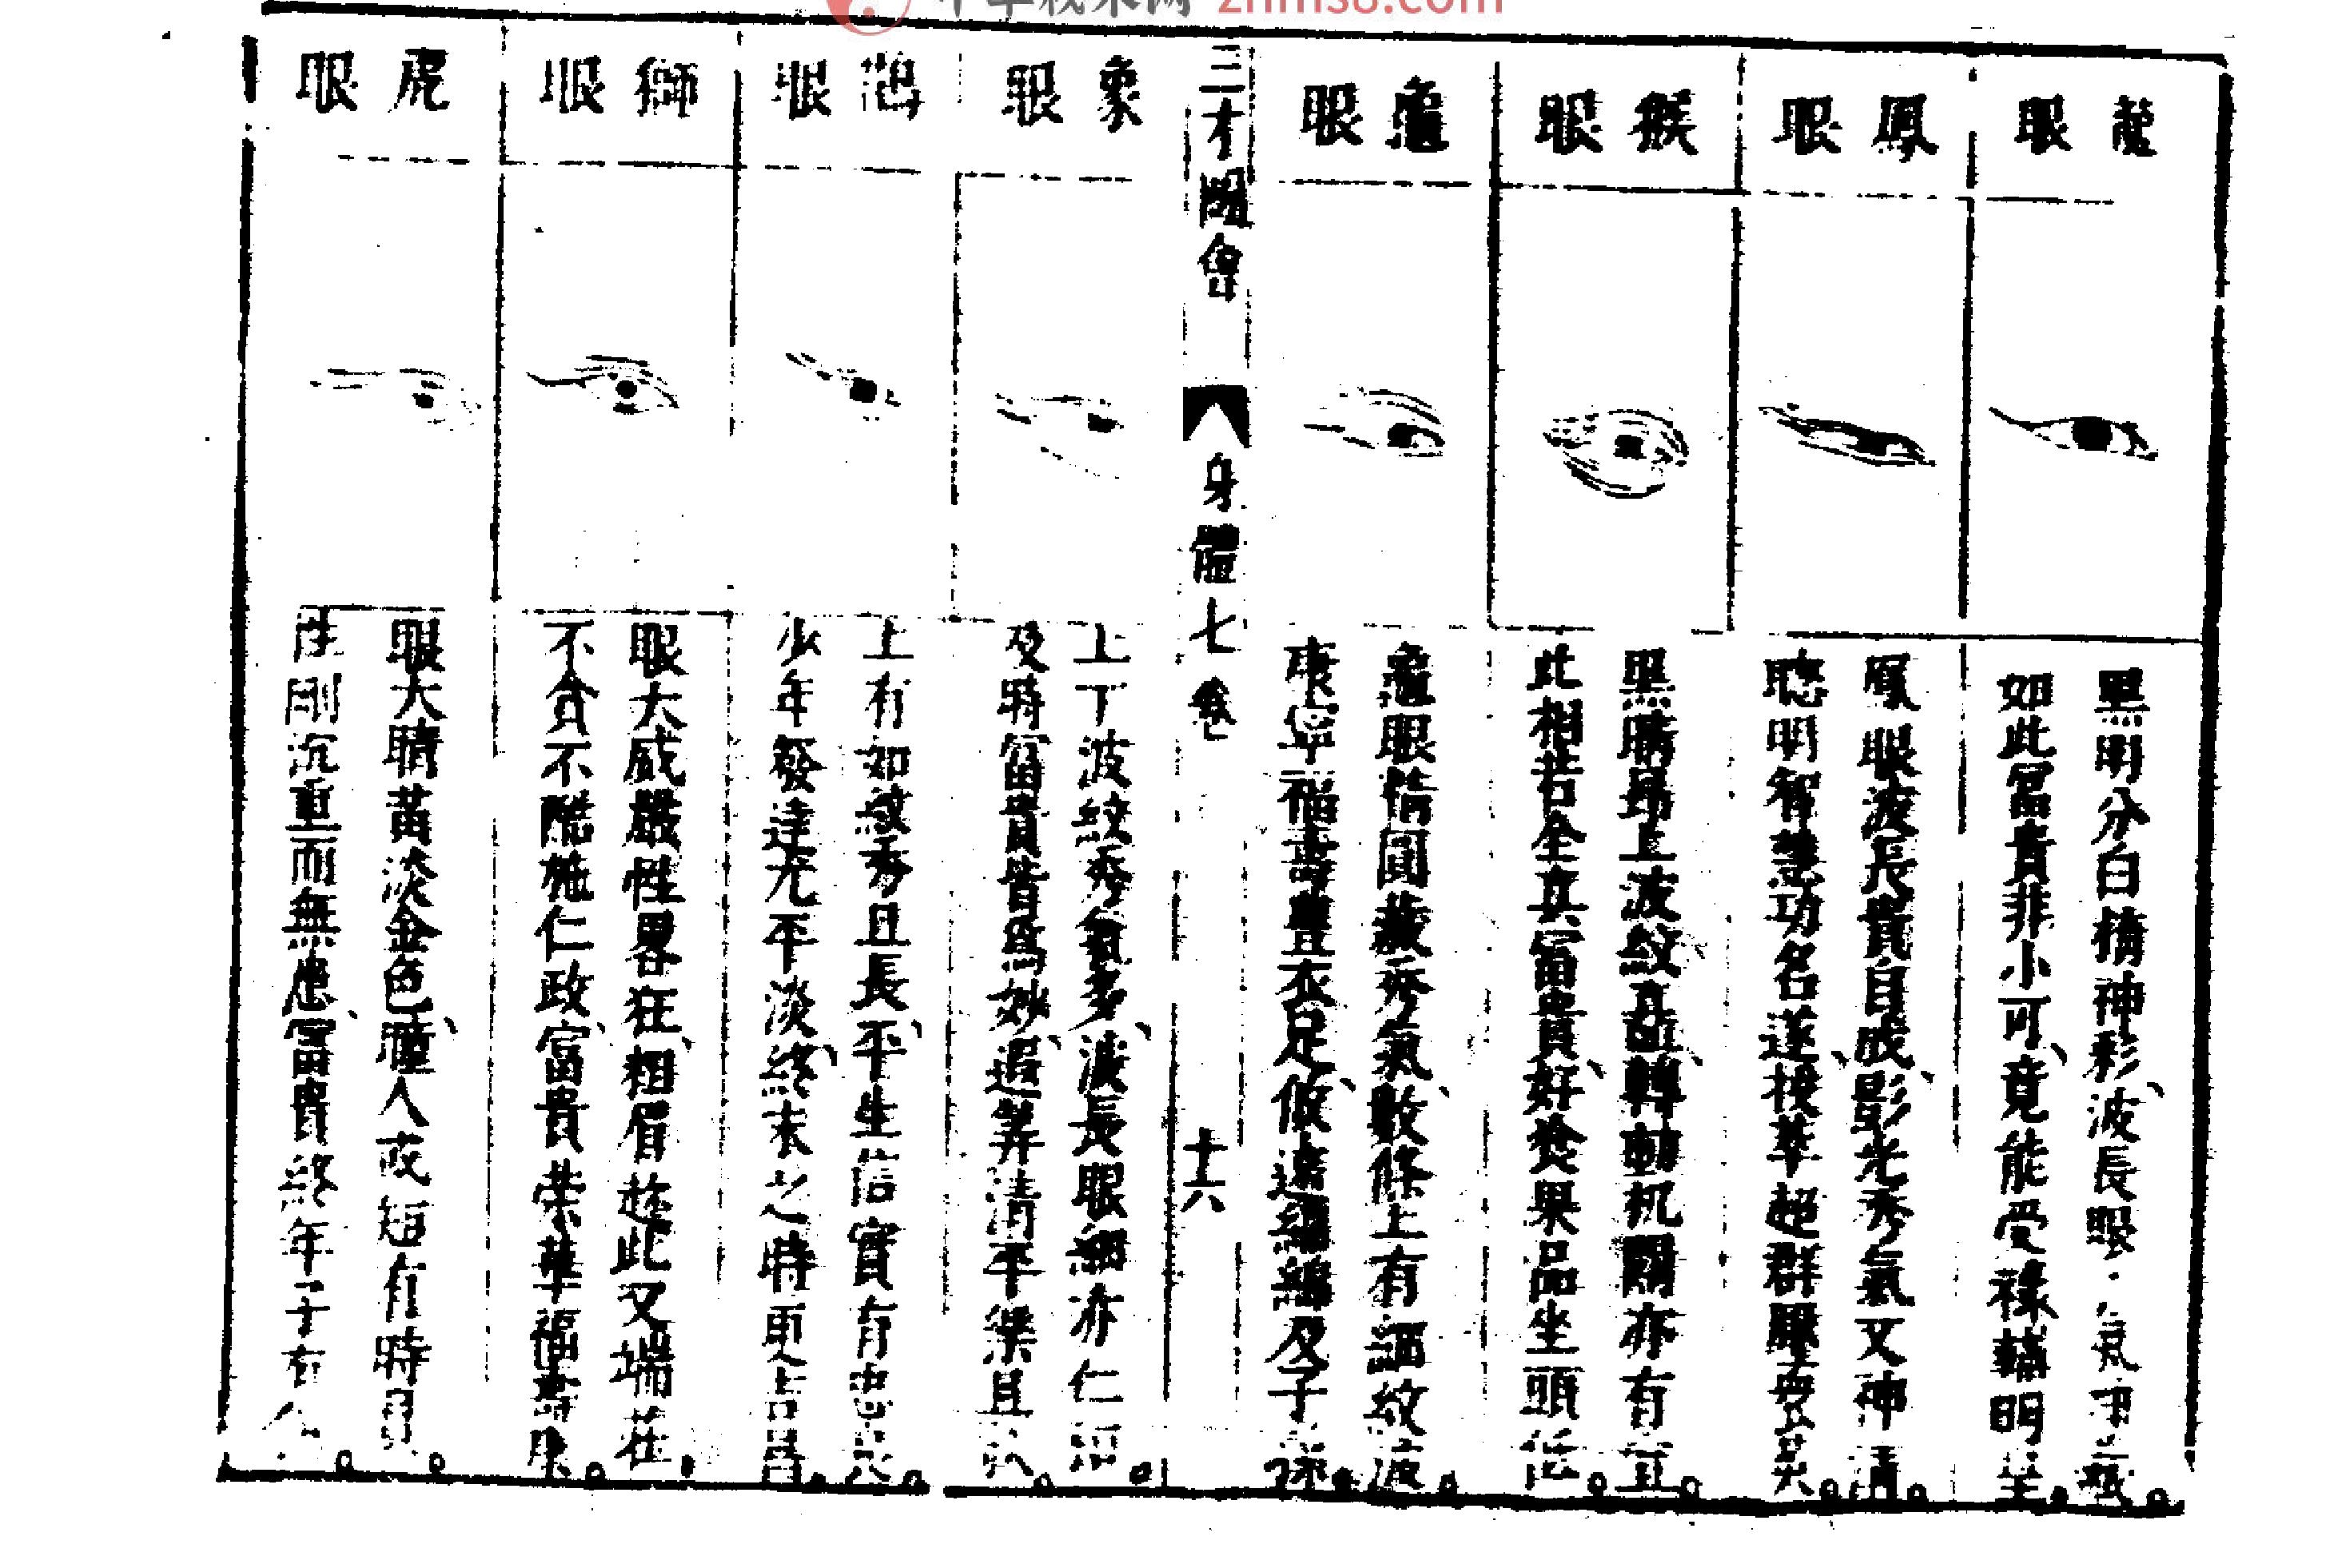 龍眼
黑明分白精神彩、波長眼 氣
如此富貴非小可、竟能受祿輔明
鳳眼
鳳眼波長貴自成、影光秀氣又神清
聰明智慧功名遂、拔萃超群壓眾英
猴眼
黑睛昂上波紋矗、轉動機關亦有宜
此相若全真富貴、好食果品坐頭低
龜眼
龜眼睛圓藏秀氣、數條上有細紋波
康寧福壽豐衣足、悠遠綿綿及子孫
三才圖會
身體七卷
十六
象眼
上下波紋秀氣多、波長眼細亦仁
及時富貴皆為妙、遐筭清平樂且
鵲眼
上有如紋秀且長、平生信實有忠
少年發達尤平淡、終末之時更吉昌
獅眼
眼大威嚴性畧狂、粗眉趂此又端莊
不貪不酷施仁政、富貴榮華福壽康
虎眼
眼大睛黃淡金色、瞳人或短有時
性剛沉重而無患、富貴終年子有
zhms8.com